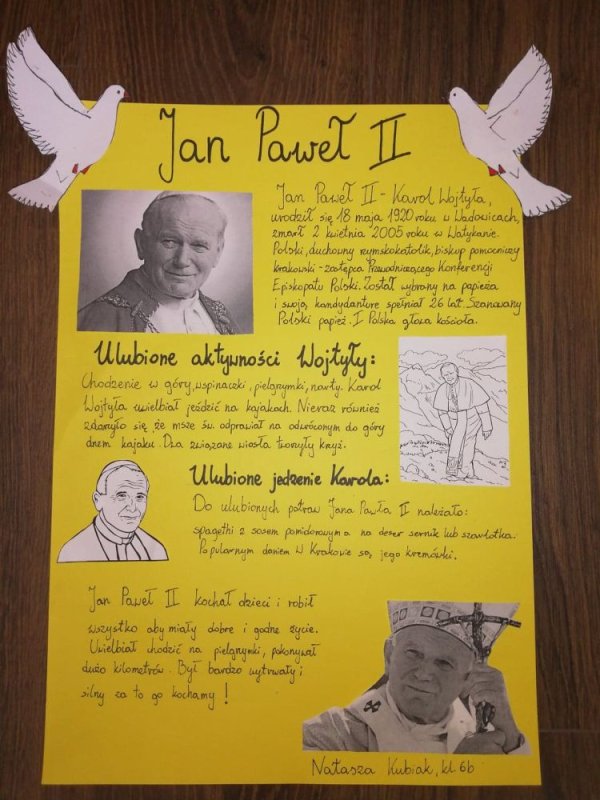 Jan Paweł II
Jan Paweł II - Karol Wojtyła,
urodził się 18 maja 1920 roku w Wadowicach,
zmarł 2 kwietnia 2005 roku w Watykanie.
Polski, duchowny rzymskokatolik, biskup pomocniczy
krakowski - zastępca Przewodniczącego Konferencji
Episkopatu Polski. Został wybrany na papieża
i swoją kandydanturę spełniał 26 lat. Szanowany
Polski papież. I Polska głowa kościoła.
Ulubione aktywności Wojtyły:
Chodzenie w góry, wspinaczki, pielgrzymki, narty. Karol
Wojtyła uwielbiał jeździć na kajakach. Nieraz również
zdarzyło się że msze św. odprawiał na odwróconym do góry
dnem kajaku. Dwa związane wiosła tworzyły krzyż.
Ulubione jedzenie Karola:
Do ulubionych potraw Jana Pawła II należało:
spagetti z sosem pomidorowym a na deser sernik lub szarlotka.
Popularnym daniem w Krakowie są jego kremówki.
Jan Paweł II kochał dzieci i robił
wszystko aby miały dobre i godne życie.
Uwielbiał chodzić na pielgrzymki, pokonywał
dużo kilometrów. Był bardzo wytrwały i
silny za to go kochamy!
Natasza Kubiak, kl. 6b